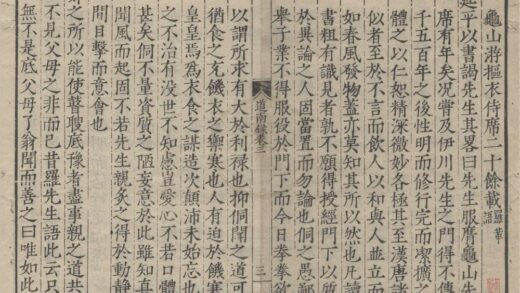 龜山游摳衣侍席二十餘載
延平以書謁先生其畧曰先生服膺龜山先
席有年矣况嘗及伊川先生之門得不傳
千五百年之後性明而修行完而潔擴之
體之以仁恕精深微妙各極其至漢唐諸
似者至於不言而飲人以和與人並立而
如春風發物蓋亦莫知其所以然也凡讀
書粗有識見者孰不願得授經門下以質
於異論之人固當置而勿論也侗之愚鄙
舉子業不得服役於門下而今日拳拳欲
道南錄卷三
三
以謂所求有大於利祿也抑侗聞之道可
猶食之充饑衣之禦寒也人有迫於饑寒
皇皇焉為衣食之謀造次顛沛未始忘也
之不治有沒世不知慮豈愛心不若口體
甚矣侗不量資質之陋妄意於此雖知真
聞風而起固不若先生親炙之得於動靜
間目擊而意會也
之所以能使瞽瞍底豫者盡事親之道共
不見父母之非而已昔羅先生語此云只
無不是底父母了翁聞而善之曰唯如此